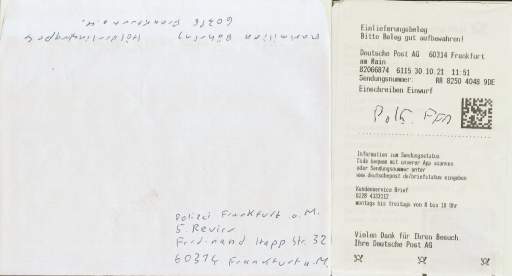 Maximilian Bähring Hölderlinstraße 4
60316 Frankfurt a. M.
Polizei Frankfurt a. M.
5 Revier
Ferdinand Happ Str. 32
60314 Frankfurt a M.
Einlieferungsbeleg
Bitte Beleg gut aufbewahren!
Deutsche Post AG 60314 Frankfurt
am Main
82066874 6115 30.10.21 11:51
Sendungsnummer: RR 8250 4048 9DE
Einschreiben Einwurf
Informationen zum Sendungsstatus
Code bequem mit unserer App scannen
oder Sendungsnummer unter
www.deutschepost.de/briefstatus eingeben
Kundenservice Brief
0228 4333112
montags bis freitags von 8 bis 18 Uhr
Vielen Dank für Ihren Besuch.
Ihre Deutsche Post AG